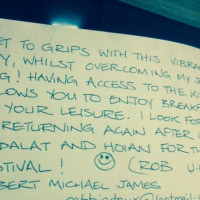 ET TO GRIPS WITH THIS VIBRA
Y, WHILST OVERCOMING MY J
G! HAVING ACCESS TO THE K
LOWS YOU TO ENJOY BREAKF
YOUR LEISURE. I LOOK FOR
RETURNING AGAIN AFTER
DALAT AND HOIAN FOR TH
STIVAL! (ROB U.
BERT MICHAEL JAMES